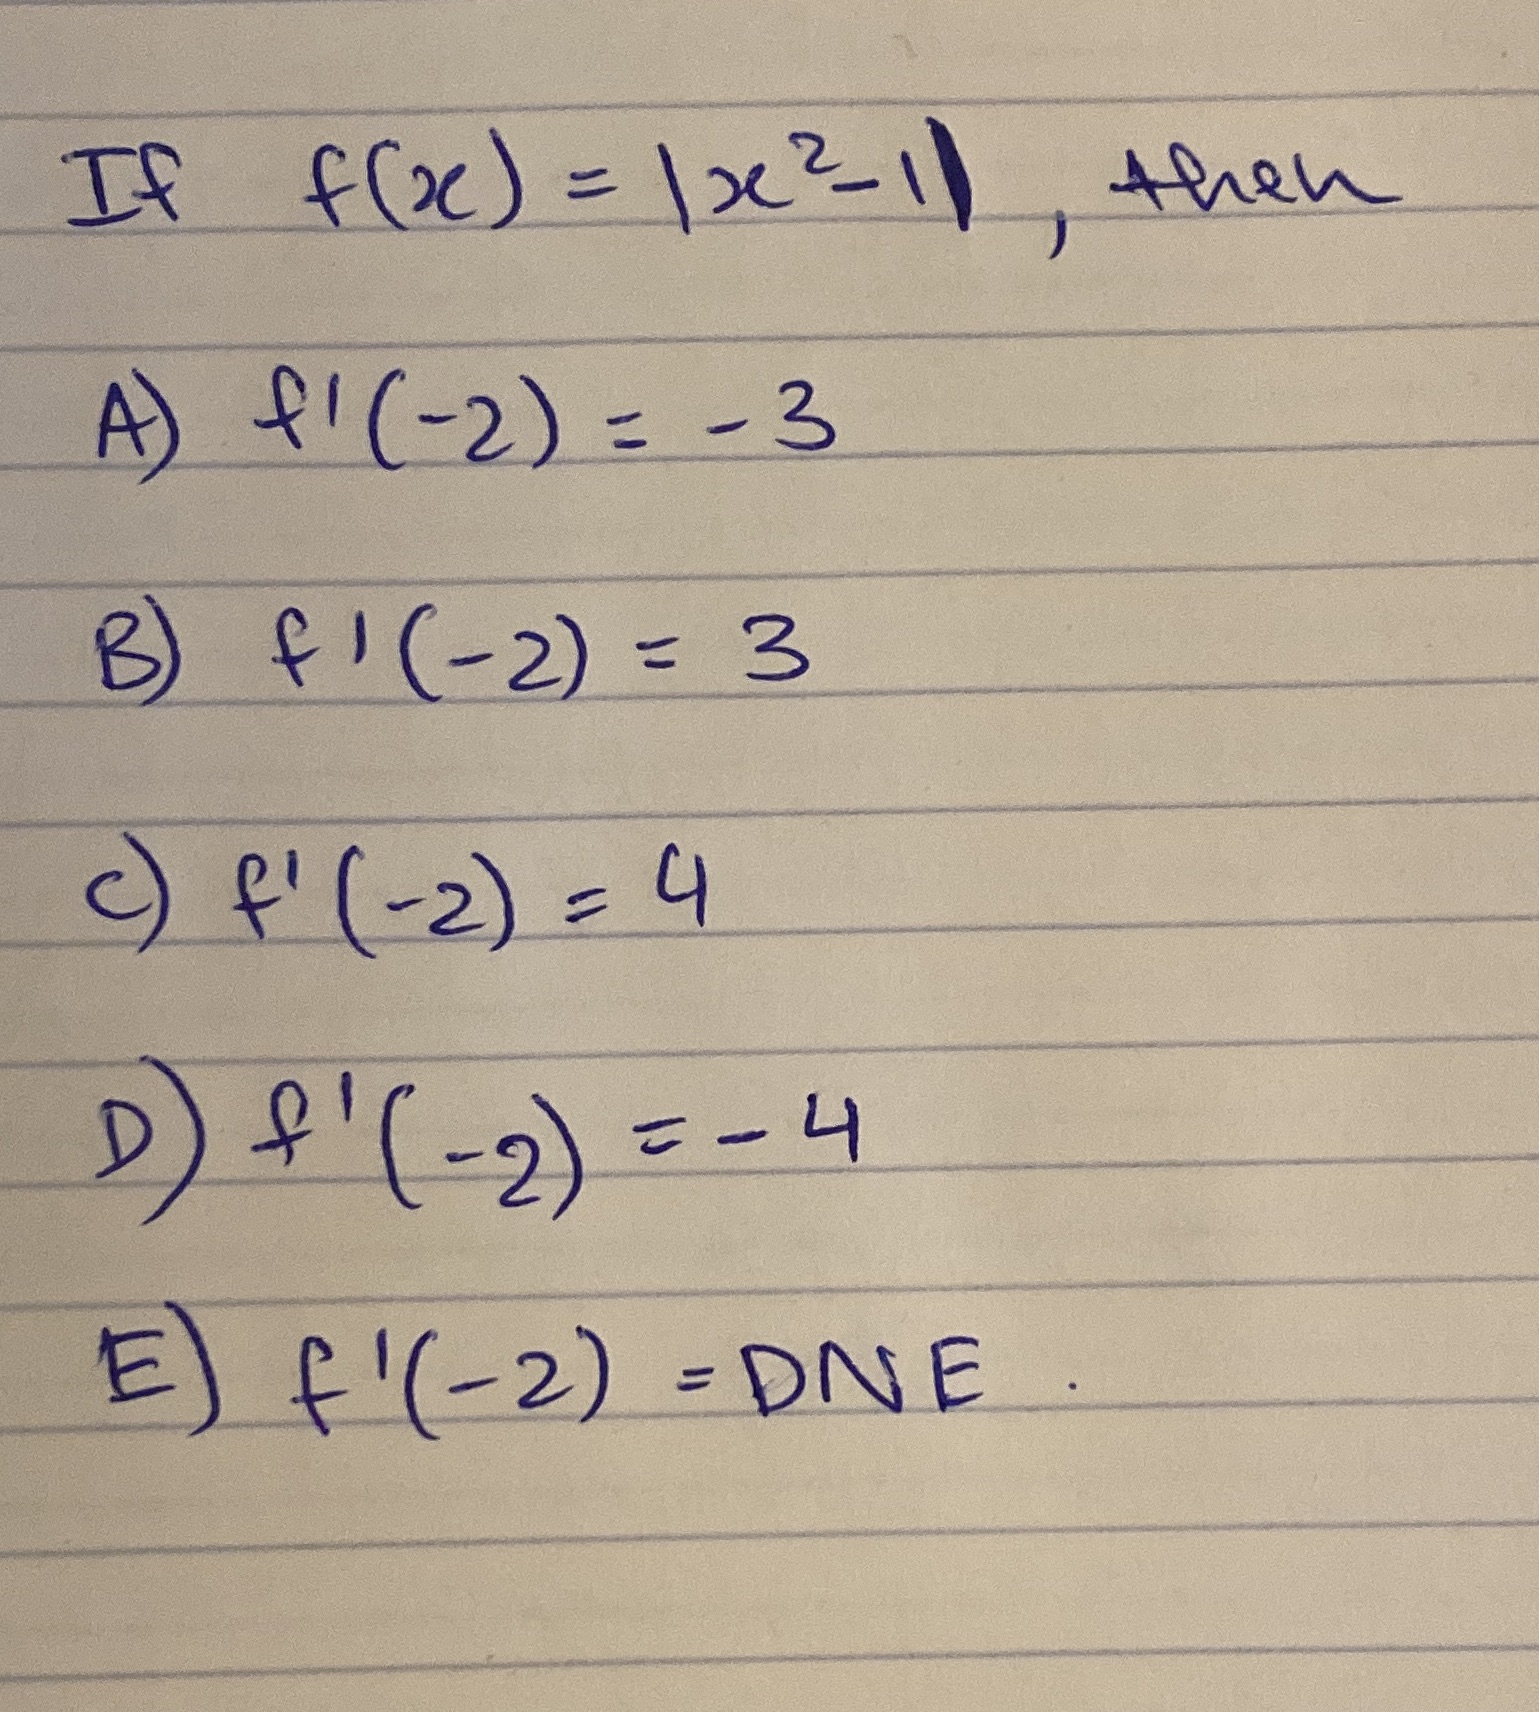 If f(x) = |x²-1|, then
A) f'(-2) = -3
B) f'(-2) = 3
C) f'(-2) = 4
D) f'(-2) = -4
E) f'(-2) = DNE.